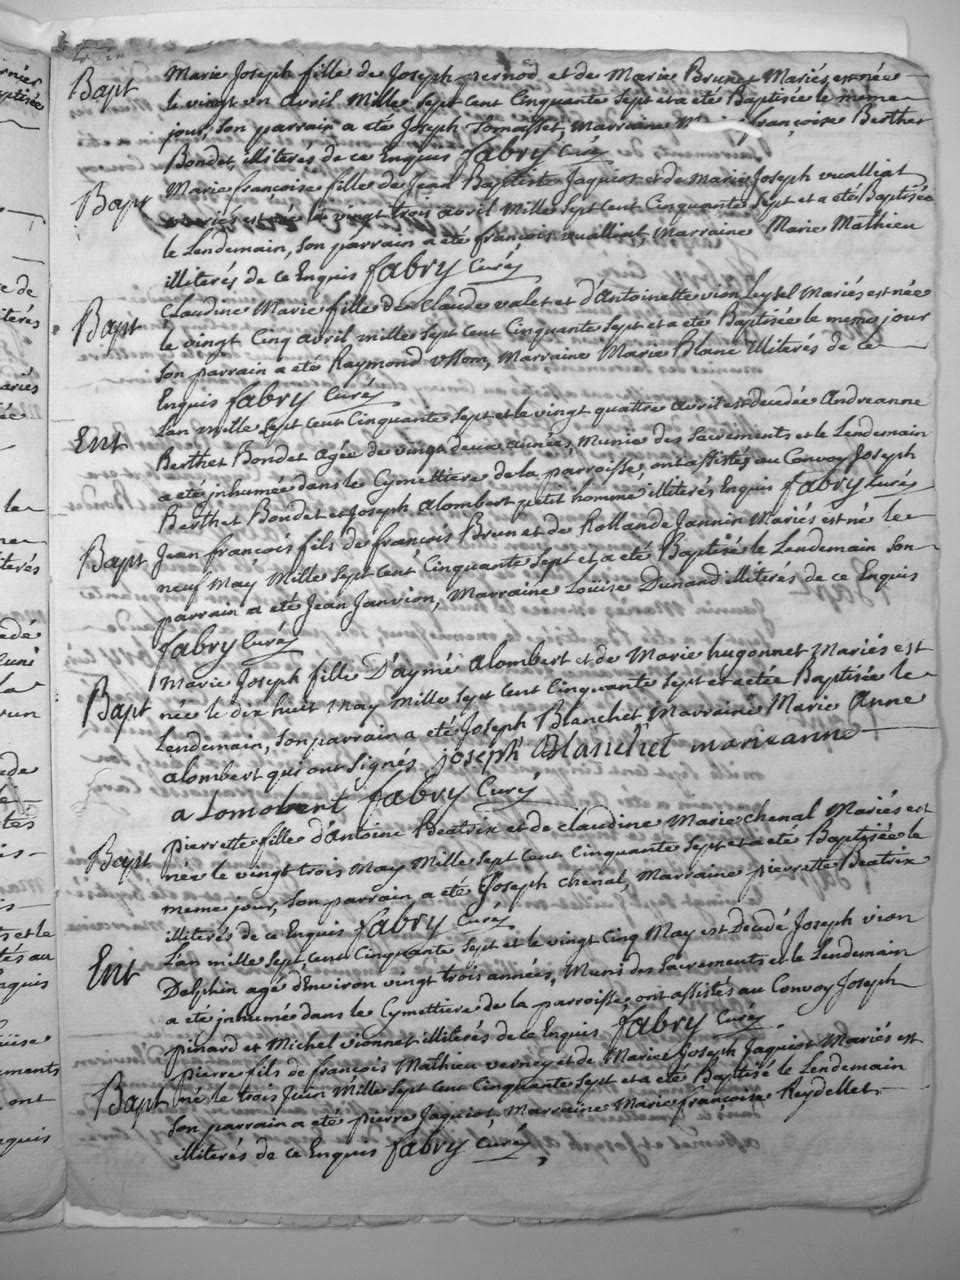 Bapt Marie Joseph fille de Joseph pernod et de Marie Brunet Mariés est née
le vingt un avril Mille sept cent Cinquante sept et a eté Baptisée le meme
jour, son parrain a eté Joseph tomasset, Marraine françoise Berthet
Bondet, illiterés de ce Enquis fabry Curé
Bapt Marie françoise fille de Jean Baptiste Jaquiot et de Marie Joseph vualliat
mariés est née le vingt trois avril Mille sept cent Cinquante sept et a eté Baptisée
le Lendemain, son parrain a eté françois vualliat, Marraine Marie Mathieu
illiterés de ce Enquis fabry Curé
Bapt Claudine Marie fille de Claude valet et d'Antoinette vion Mariés est née
le vingt Cinq avril mille sept cent Cinquante sept et a eté Baptisée le meme jour
son parrain a eté Raymond, Marraine Marie Blanc illiterés de ce
Enquis fabry Curé
Ent L'an mille sept cent Cinquante sept et le vingt quattre avril est decedée Andreanne
Berthet Bondet agée de vingt deux années, Munie des Sacrements et le Lendemain
a eté inhumée dans le Cymettiere de la parroisse, ont assistés au Convoy Joseph
Berthet Bondet et Joseph alombert petit homme illiterés Enquis fabry Curé
Bapt Jean françois fils de françois Brun et de Rollande Jannin Mariés est né le
neuf May Mille sept cent Cinquante sept et a eté Baptisé le Lendemain son
parrain a eté Jean Janvion, Marraine Loüise Dunand illiterés de ce Enquis
fabry Curé
Bapt Marie Joseph fille D'aymé alombert et de Marie hugonnet Mariés est
née le dix huit May Mille sept cent Cinquante sept et a etée Baptisée le
Lendemain, son parrain a eté Joseph Blanchet, Marraine Marie Anne
alombert qui ont signés joseph Blanchet marieanne
alombert fabry Curé
Bapt pierrette fille d'antoine Beatrix et de claudine Marie chenal Mariés est
née le vingt trois May Mille sept cent Cinquante sept et a eté Baptisée le
meme jour, son parrain a eté Joseph chenal, Marraine pierrette Beatrix
illiterés de ce Enquis fabry Curé
Ent L'an mille sept cent Cinquante sept et le vingt Cinq May est Decedé Joseph vion
Delphin agé d'Environ vingt trois années, Muni des Sacrements et le Lendemain
a eté inhumé dans le Cymettiere de la parroisse ont assistés au Convoy Joseph
pinard et Michel vionnet illiterés de ce Enquis fabry Curé
Bapt pierre fils de françois Mathieu verney et de Marie Joseph Jaquiot Mariés est
né le trois Juin Mille sept cent Cinquante sept et a eté Baptisé le Lendemain
son parrain a eté pierre Jaquiot, Marraine Marie françoise Reydellet
illiterés de ce Enquis fabry Curé